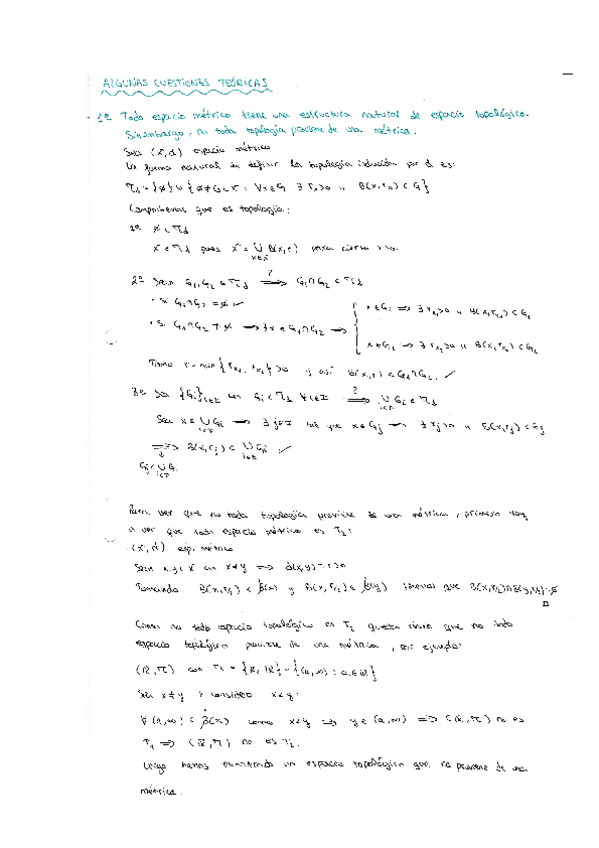 ALGUNAS CUESTIONES TEÓRICAS
1º Todo espacio métrico tiene una estructura natural de espacio topológico.
Sin embargo, no toda topología proviene de una métrica.
Sea (X,d) espacio métrico
La forma natural de definir la topología inducida por d es:
τd = {∅} ∪ {∅≠G⊂X : ∀x∈G ∃ rx>0 B(x,rx) ⊂ G}
Comprobemos que es topología:
1º ∅ ∈ τd
X ∈ τd pues X = ∪ B(x,r) para cierto r>0.
x∈X
2º Sean G1, G2 ∈ τd ⟹? G1∩G2 ∈ τd
· Si G1∩G2 = ∅ ✓
· Si G1∩G2 ≠ ∅ ⟶ ∃x∈G1∩G2 ⟶ { x∈G1 ⟹ ∃ rx1>0 B(x,rx1) ⊂ G1
x∈G2 ⟶ ∃ rx2>0 B(x,rx2) ⊂ G2
Tomo r = min{rx1, rx2} >0 y así B(x,r) ⊂ G1∩G2. ✓
3º Sea {Gi}i∈I con Gi ∈ τd ∀i∈I ⟹? ∪ Gi ∈ τd
i∈I
Sea x ∈ ∪ Gi ⟶ ∃ j∈I tal que x∈Gj ⟶ ∃ rj>0 B(x,rj) ⊂ Gj
i∈I
⟹ B(x,rj) ⊂ ∪ Gi ✓
i∈I
Gj ⊂ ∪ Gi
i∈I
Para ver que no toda topología proviene de una métrica, primero voy
a ver que todo espacio métrico es T2:
(X,d) esp. métrico
Sean x,y∈X con x≠y ⟹ d(x,y) = r>0
Tomando B(x,r/2) ∈ β(x) y B(y,r/2) ∈ β(y) tenemos que B(x,r/2)∩B(y,r/2)=∅
Como no todo espacio topológico es T2 queda claro que no todo
espacio topológico proviene de una métrica, por ejemplo:
(R,τ) con τ = {∅, R} ∪ {(a,∞) : a∈R}
Sea x≠y y considero x<y:
∀ (a,∞) ∈ β(x) como x<y ⟹ y∈(a,∞) ⟹ (R,τ) no es
T1 ⟹ (R,τ) no es T2.
Luego hemos encontrado un espacio topológico que no proviene de una
métrica.